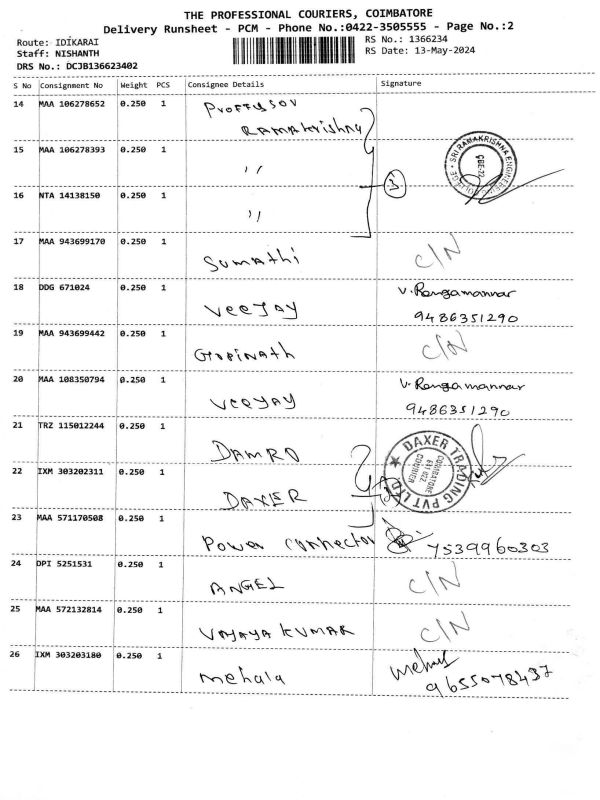 THE PROFESSIONAL COURIERS, COIMBATORE
Delivery Runsheet - PCM - Phone No.:0422-3505555 - Page No.:2
Route: IDIKARAI
RS No.: 1366234
Staff: NISHANTH
RS Date: 13-May-2024
DRS No.: DCJB136623402
S No Consignment No Weight PCS Consignee Details Signature
14 MAA 106278652 0.250 1 Proffusov
Ramakrishna
15 MAA 106278393 0.250 1 ,,
SRI RAMAKRISHNA ENGINEERING COLLEGE
CBE-22
3
16 NTA 14138150 0.250 1 ,,
17 MAA 943699170 0.250 1 Sumathi C/N
18 DDG 671024 0.250 1 Veejay V. Rengamannar
9486351290
19 MAA 943699442 0.250 1 Gopinath C/N
20 MAA 108350794 0.250 1 Veejay V. Rengamannar
9486351290
21 TRZ 115012244 0.250 1 DAMRO
DAXER TRADING PVT LTD
COIMBATORE
641 022
COURIER
22 IXM 303202311 0.250 1 DAXER
23 MAA 571170508 0.250 1 Power Connector 7539960303
24 DPI 5251531 0.250 1 ANGEL C/N
25 MAA 572132814 0.250 1 VAJAYA KUMAR C/N
26 IXM 303203180 0.250 1 Mehala
9655078437